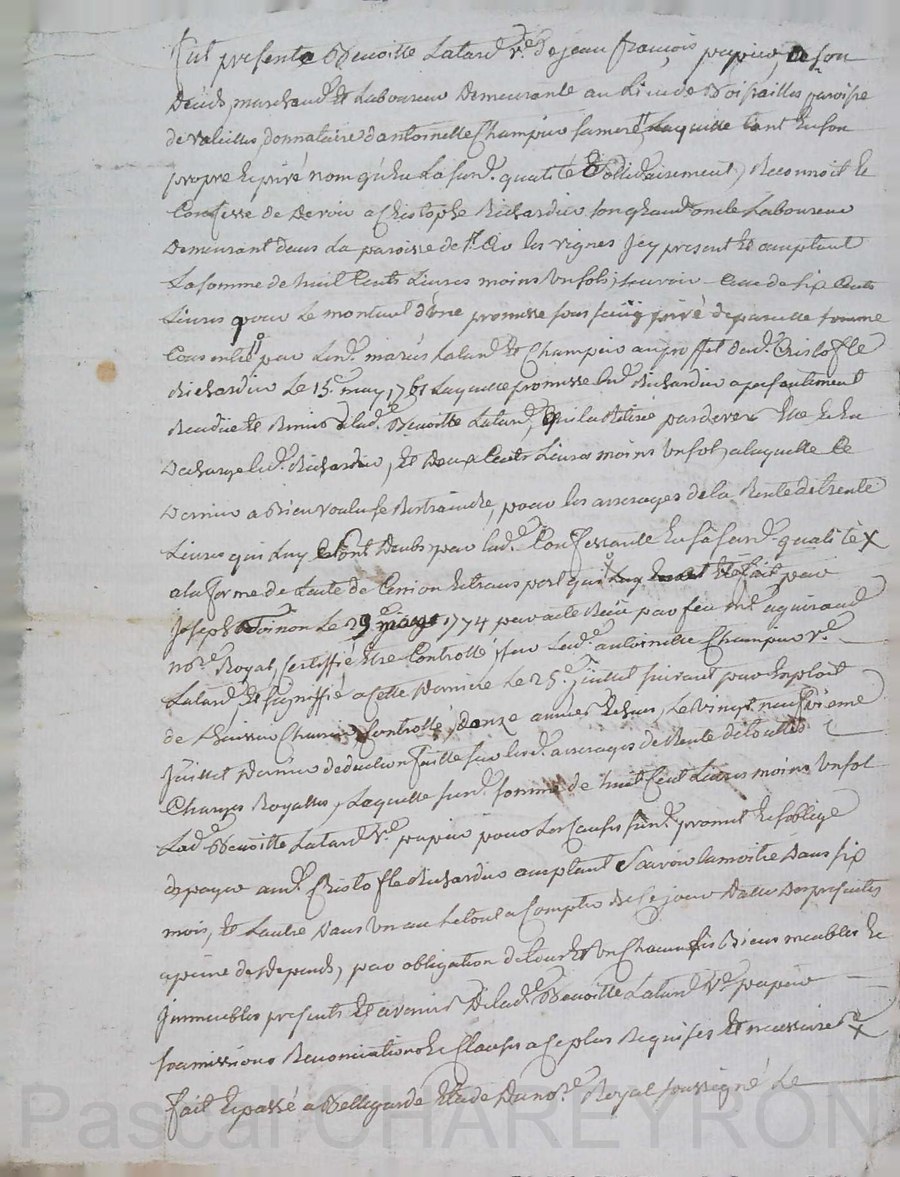 fut presente Benoitte Latard v.e de jean françois papier a son
deceds, marchand et Laboureur demeurante au Lieu de Boisailles paroise
de valeilles, donnataire d'antoinette Champier sa mere, Laquelle tant en son
propre et privé nom qu'en La susd. qualité solidairement, Reconnoit et
Confesse de devoir a Christophe Richardier son grand oncle Laboureur
demeurant dans La paroisse de st Cir les vignes jcy present et acceptant
La somme de huit Cents Livres moins un sols, scavoir Celle de six Cents
Livres pour Le montant d'une promesse sous seing privé de pareille somme
Consentie par Les mariés Latard et Champier au proffit dud. Cristofle
Richardier Le 15.e may 1761 Laquelle promesse led. Richardier a presentement
Rendue et Remis a lad. Benoitte Latard, qui la Retiré par devers Elle et en
decharge led. Richardier, et deux Cents Livres moins un sol, a laquelle Ce
dernier a Bien voulu se Restraindre, pour les arrerages de la Rente de trente
Livres qui Luy sont deubs par lad. Confessante en sa susd. qualité x
a la forme de L'acte de Cession et transport qui Luy a été fait par
Joseph Poinon Le 29 mars 1774 par acte Recu par feu me aguiraud
no.re Royal, Certiffié Etre Controllé, sur Lad.e antoinette Champier v.e
Latard, et signiffié a cette derniere Le 25.e juillet suivant par Exploit
de Controllé, d'onze années Echues, Le vingt neufvieme
juillet dernier deduction faitte sur lesd. arrerages de Rente de touttes
Charges Royalles, Laquelle susd. somme de huit Cent Livres moins un sol
Lad. Benoitte Latard v.e papier pour Les Causes susd. promet et s'oblige
de payer aud. Cristofle Richardier acceptant scavoir La moitié dans six
mois, et L'autre dans un an Le tout a Compter de Ce jour datte des presentes
a peine de depends, par obligation de tous et un Chacun ses Biens meubles et
jmmeubles presents et avenir de lad. Benoitte Latard v.e papier
soumissions Renonciations et Clauses a ce plus Requises et necessaires x
fait et passé a Bellegarde Etude du no.re Royal soussigné Le
Pascal CHAREYRON